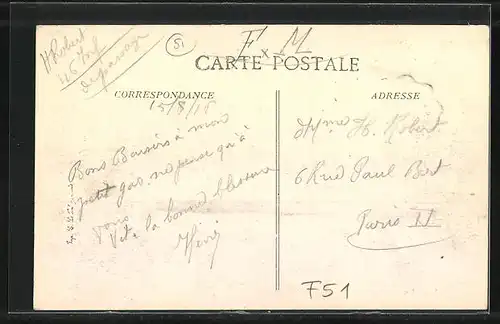 H Robert
46 Inf
de passage
51
F M
CARTE POSTALE
CORRESPONDANCE
15/8/15
Bons Baisers à mon
petit gas ne pense qu'à
vous
Vite la bonne blessure
Henri
ADRESSE
Mme H. Robert
6 Rue Paul Bert
Paris 11
F51